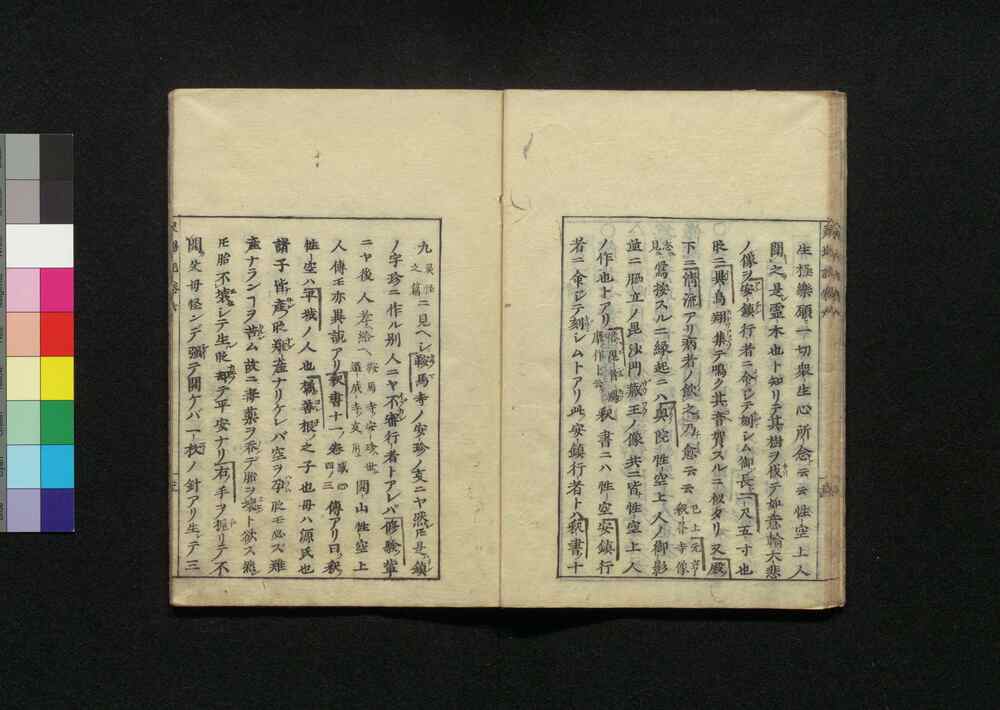 生極樂願一切衆生心所念云云性空上人
聞之是霊木也ト知リテ其樹ヲ伐テ如意輪大悲
ノ像ヲ安鎮行者ニ命シテ刻シム御長一尺五寸也
此ニ異鳥翔集テ鳴ク其音賀スルニ似タリ又殿
下ニ清流アリ病者ノ飲之乃愈云云 已上元亨釈書寺像
志見 鶯按スルニ縁起ニハ奥院性空上人ノ御影
並ニ脇立ノ毘沙門蔵王ノ像共ニ皆性空上人
ノ作也トアリ 釈書ニハ性空安鎮行
者ニ命シテ刻シムトアリ此安鎮行者トハ釈書十
九 霊怪之篇 ニ見ヘシ鞍馬寺ノ安珍ノ支ニヤ然トモ是ハ鎮
ノ字珍ニ作ル別人ニヤ不審行者トアレバ修験輩
ニヤ後人考給ヘ 鞍馬寺安珍世道成寺支用 開山性空上
人傳モ亦異説アリ釈書十一ノ巻 傳アリ曰ク釈
性空ハ平城ノ人也橘善根ノ之子也母ハ源氏也
諸子皆産ノ時難産ナリケレバ空ヲ孕時モ必ス難
産ナランコヲ苦ム故ニ毒薬ヲ呑デ胎ヲ壊ト欲ス然
トモ胎不壊シテ生時却テ平安ナリ右ノ手ヲ握リテ不
開父母怪ンデ強テ開ケバ一枚ノ針アリ生テ三